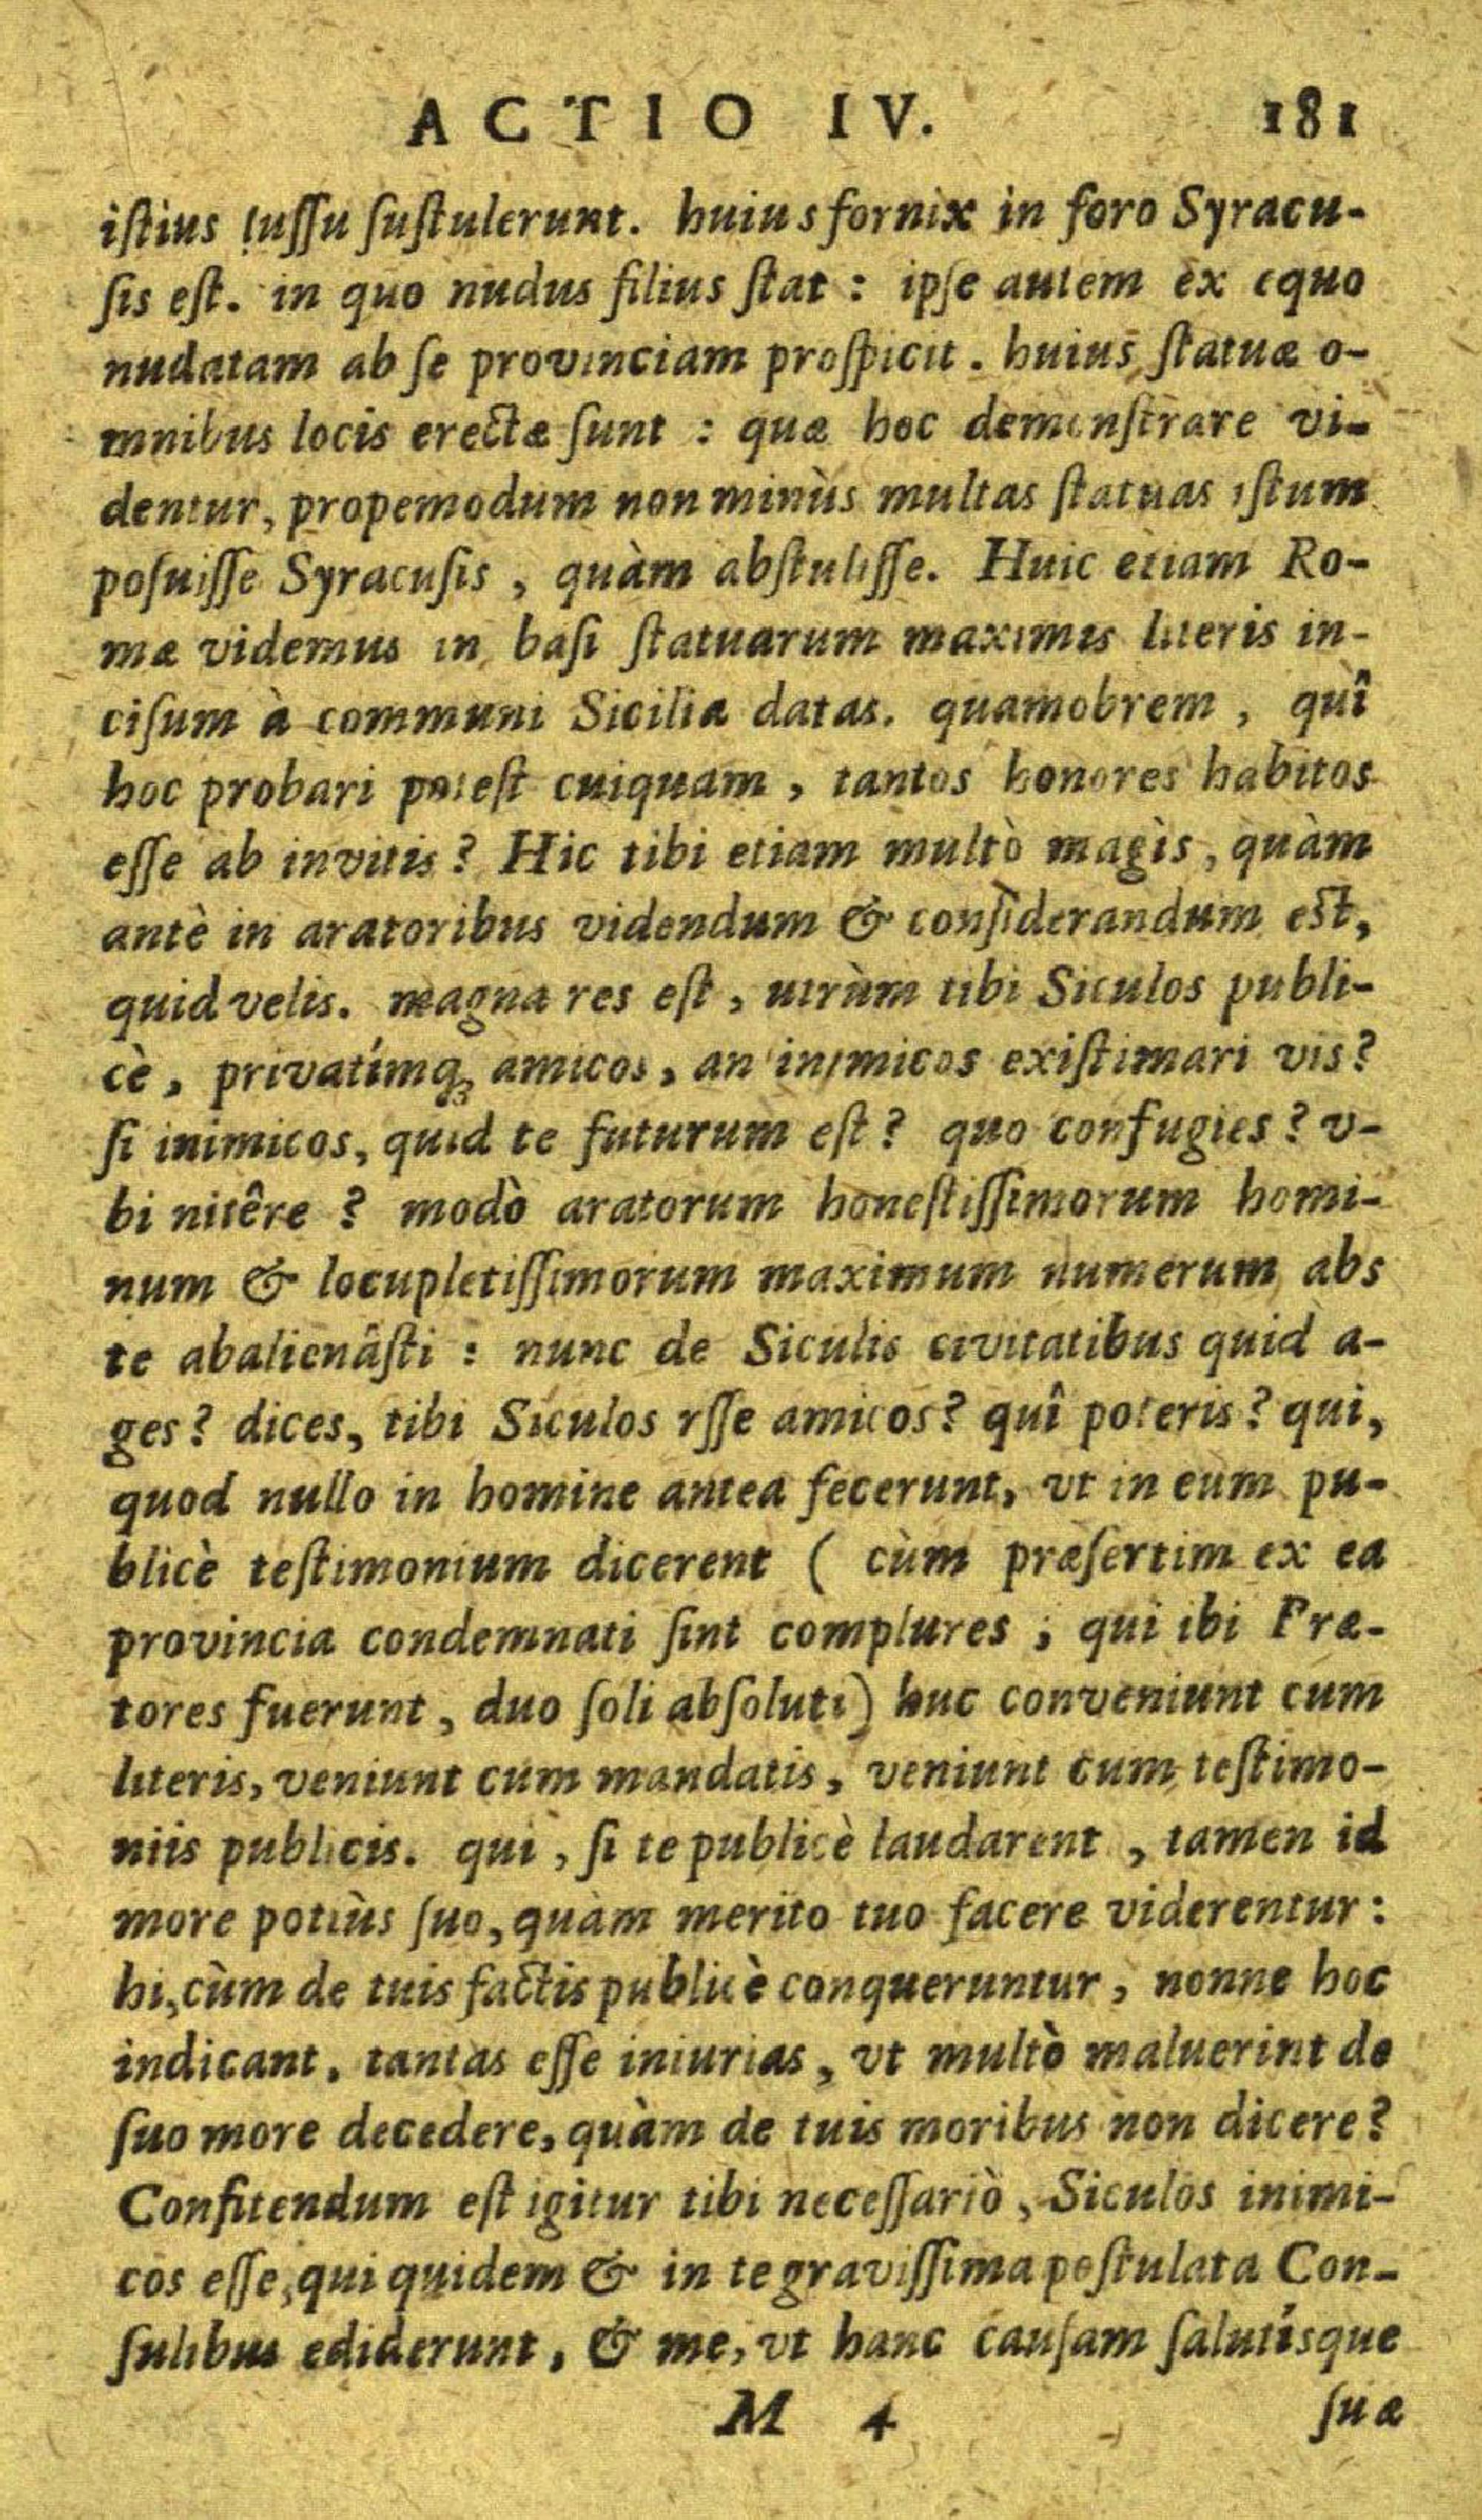 ACTIO IV. 181
iſtius iuſſu ſuſtulerunt. huius fornix in foro Syracu-
ſis eſt. in quo nudus filius ſtat : ipſe autem ex equo
nudatam ab ſe provinciam proſpicit. huius ſtatuæ o-
mnibus locis erectæ ſunt : quæ hoc demonſtrare vi-
dentur, propemodum non minùs multas ſtatuas iſtum
poſuiſſe Syracuſis, quàm abſtuliſſe. Huic etiam Ro-
mæ videmus in baſi ſtatuarum maximis literis in-
ciſum à communi Siciliæ datas. quamobrem, quî
hoc probari poteſt cuiquam, tantos honores habitos
eſſe ab invitis? Hic tibi etiam multò magìs, quàm
antè in aratoribus videndum & conſiderandum eſt,
quid velis. magna res eſt, utrùm tibi Siculos publi-
cè, privatímq; amicos, an inimicos exiſtimari vis?
ſi inimicos, quid te futurum eſt? quo confugies? v-
bi nitêre? modò aratorum honeſtiſſimorum homi-
num & locupletiſſimorum maximum numerum abs
te abalienâſti : nunc de Siculis civitatibus quid a-
ges? dices, tibi Siculos eſſe amicos? quî poteris? qui,
quod nullo in homine antea fecerunt, vt in eum pu-
blicè teſtimonium dicerent ( cùm præſertim ex ea
provincia condemnati ſint complures ; qui ibi Præ-
tores fuerunt, duo ſoli abſoluti) huc conveniunt cum
literis, veniunt cum mandatis, veniunt cum teſtimo-
niis publicis. qui, ſi te publicè laudarent, tamen id
more potiùs ſuo, quàm merito tuo facere viderentur:
hi, cùm de tuis factis publicè conqueruntur, nonne hoc
indicant, tantas eſſe iniurias, vt multò maluerint de
ſuo more decedere, quàm de tuis moribus non dicere?
Confitendum eſt igitur tibi neceſſariò, Siculos inimi-
cos eſſe, qui quidem & in te graviſſima poſtulata Con-
ſulibus ediderunt, & me, vt hanc cauſam ſalutísque
M 4 ſuæ